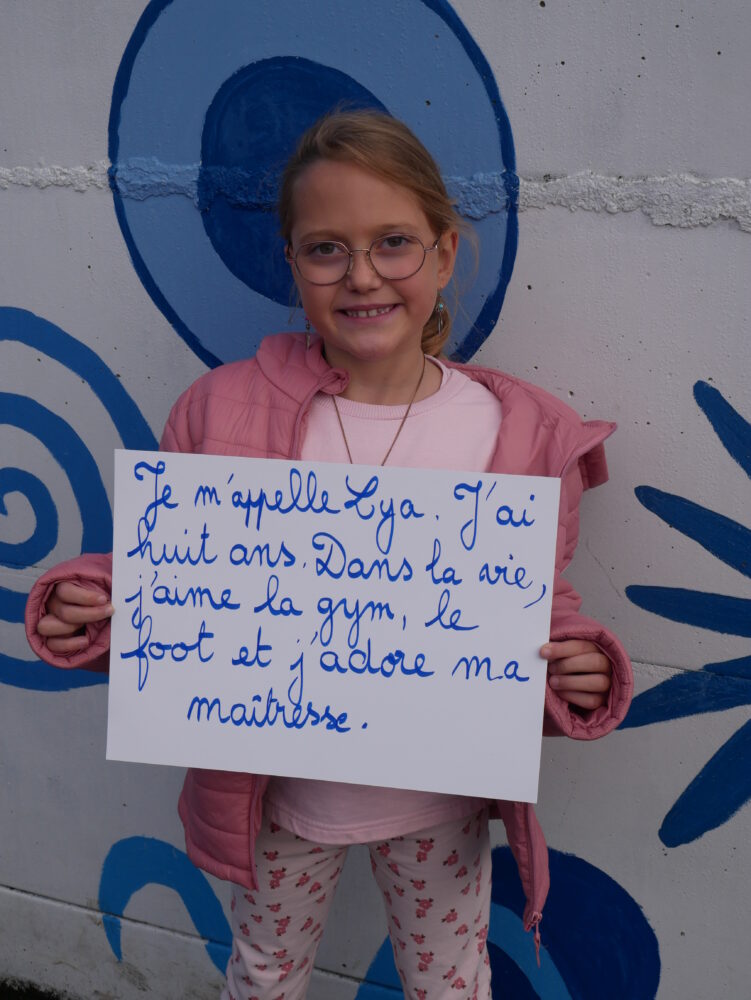 Je m'appelle Lya. J'ai
huit ans. Dans la vie,
j'aime la gym, le
foot et j'adore ma
maîtresse.